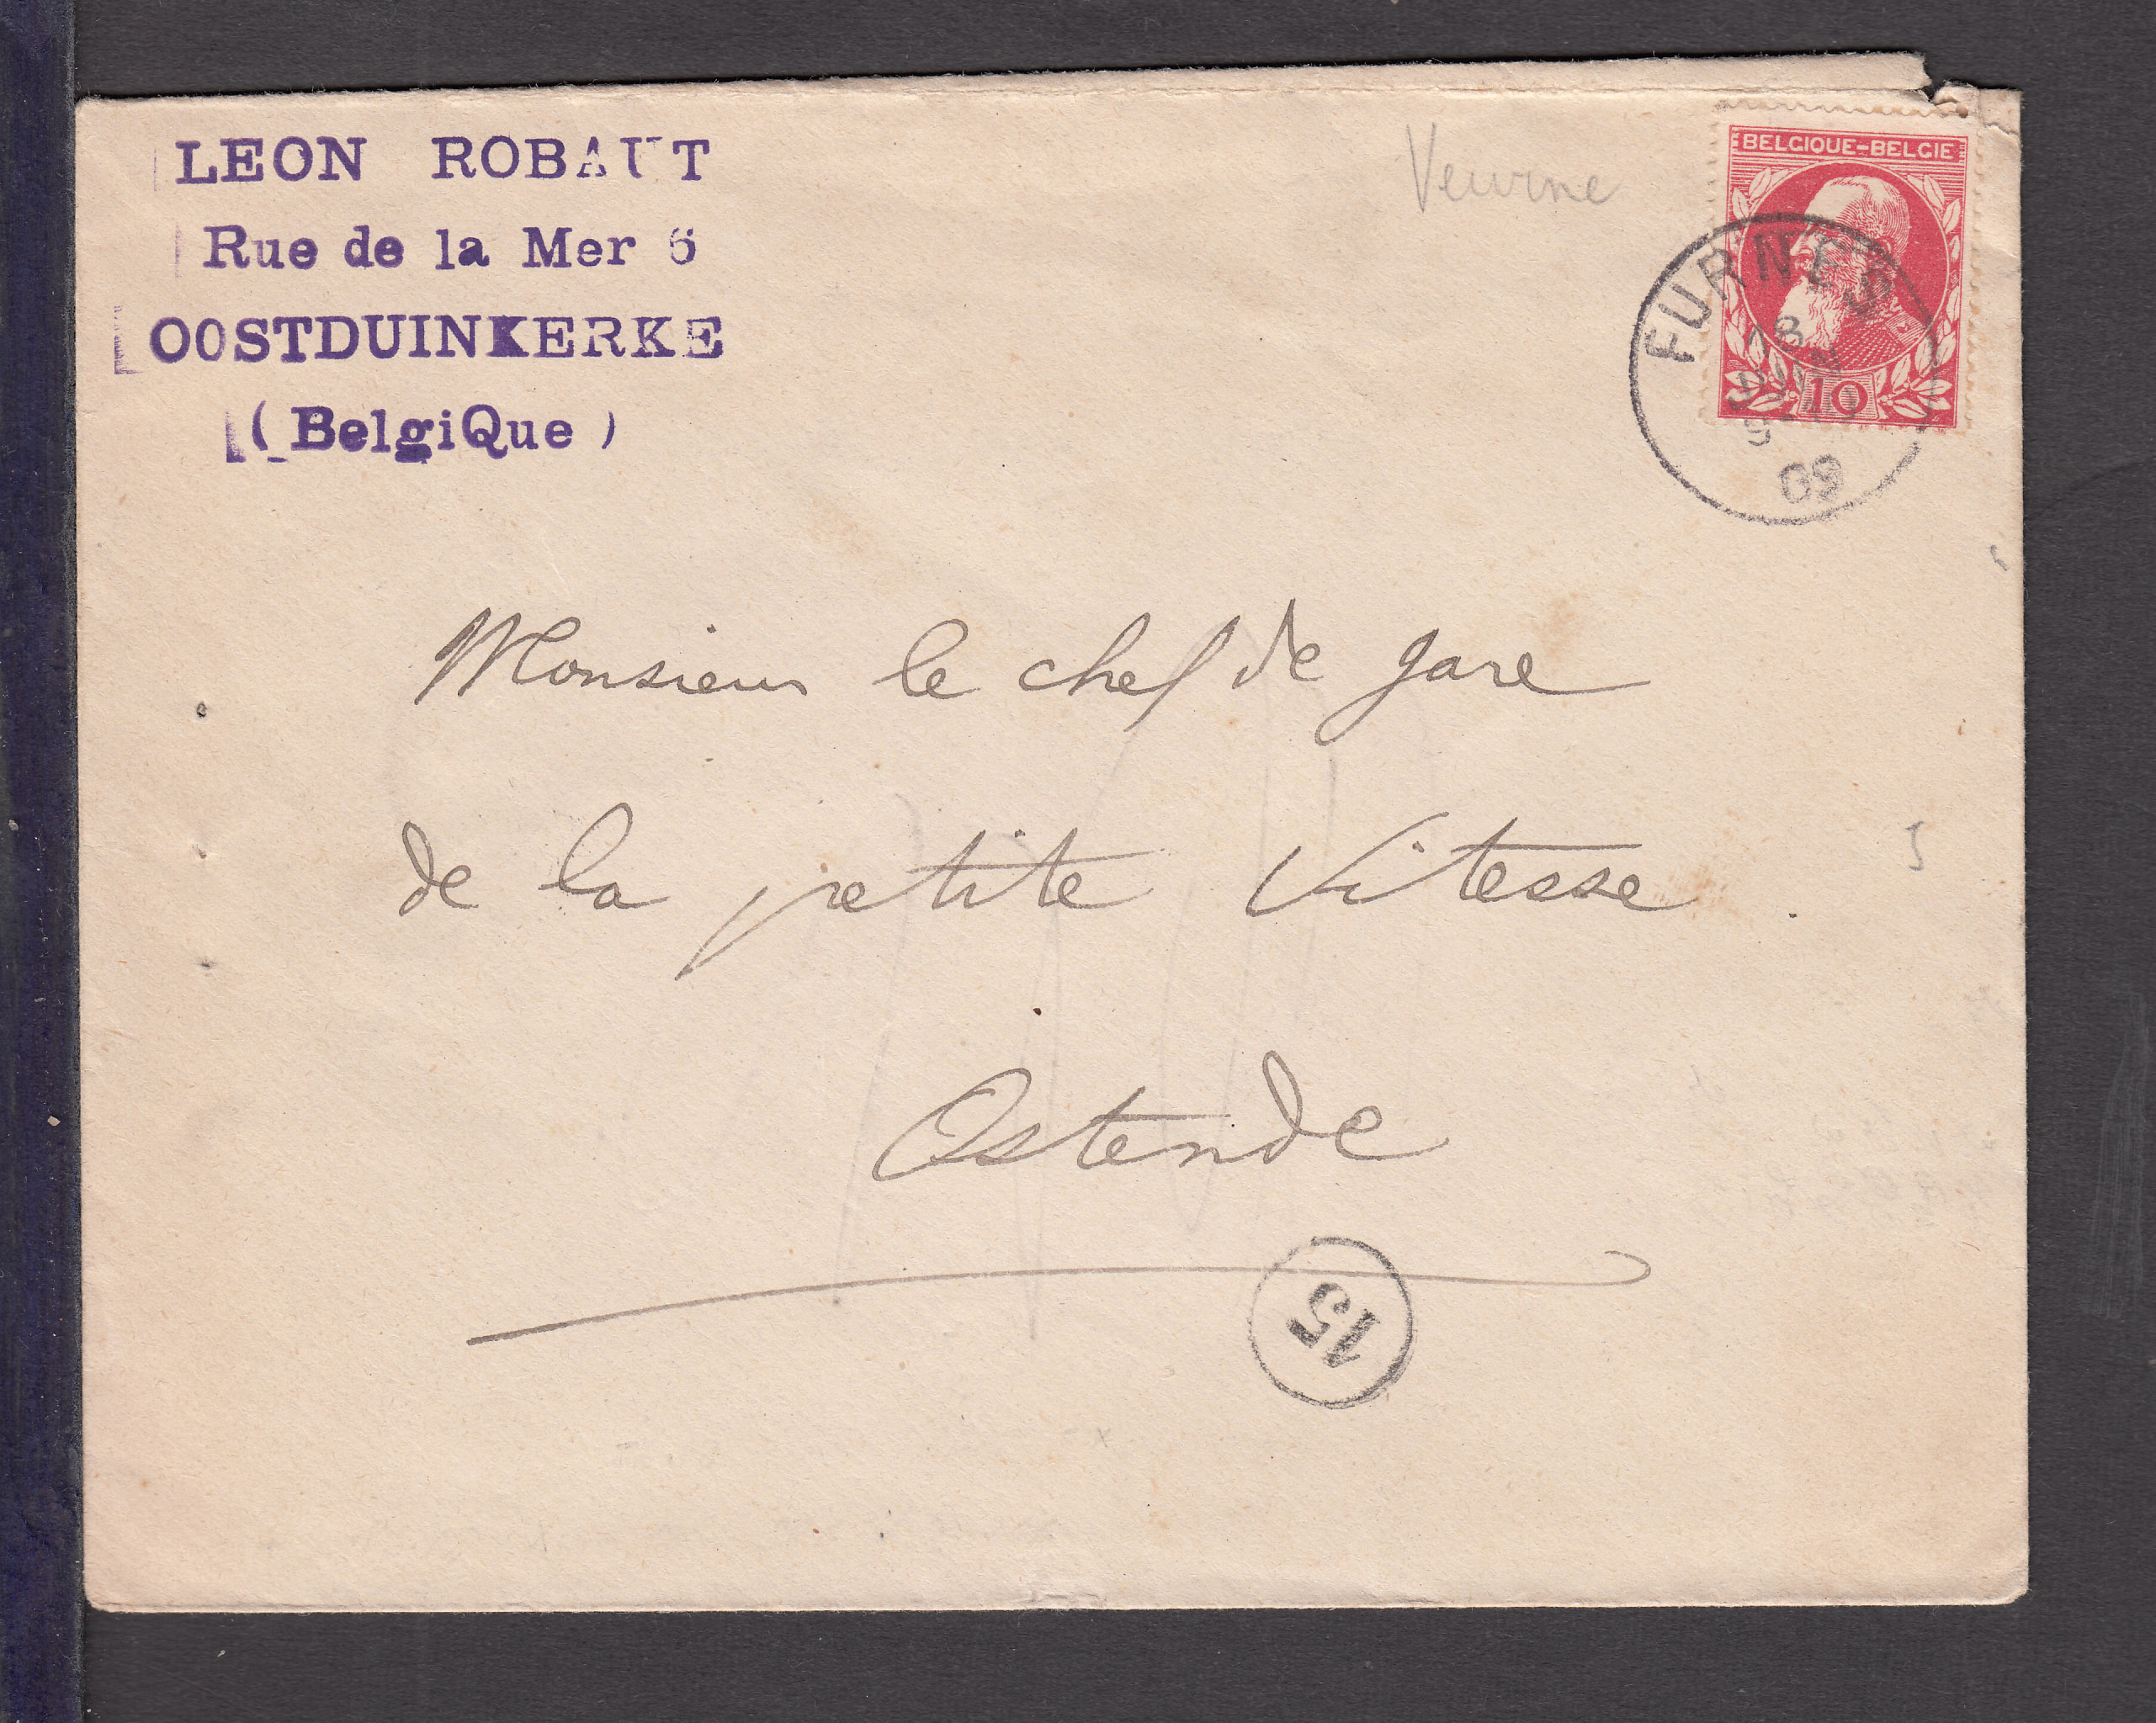 LEON ROBAUT
Rue de la Mer 6
OOSTDUINKERKE
(BelgiQue)
Veurne
BELGIQUE-BELGIE
10
FURNES
18
JUIN
09
Monsieur le chef de gare
de la petite Vitesse
Ostende
15